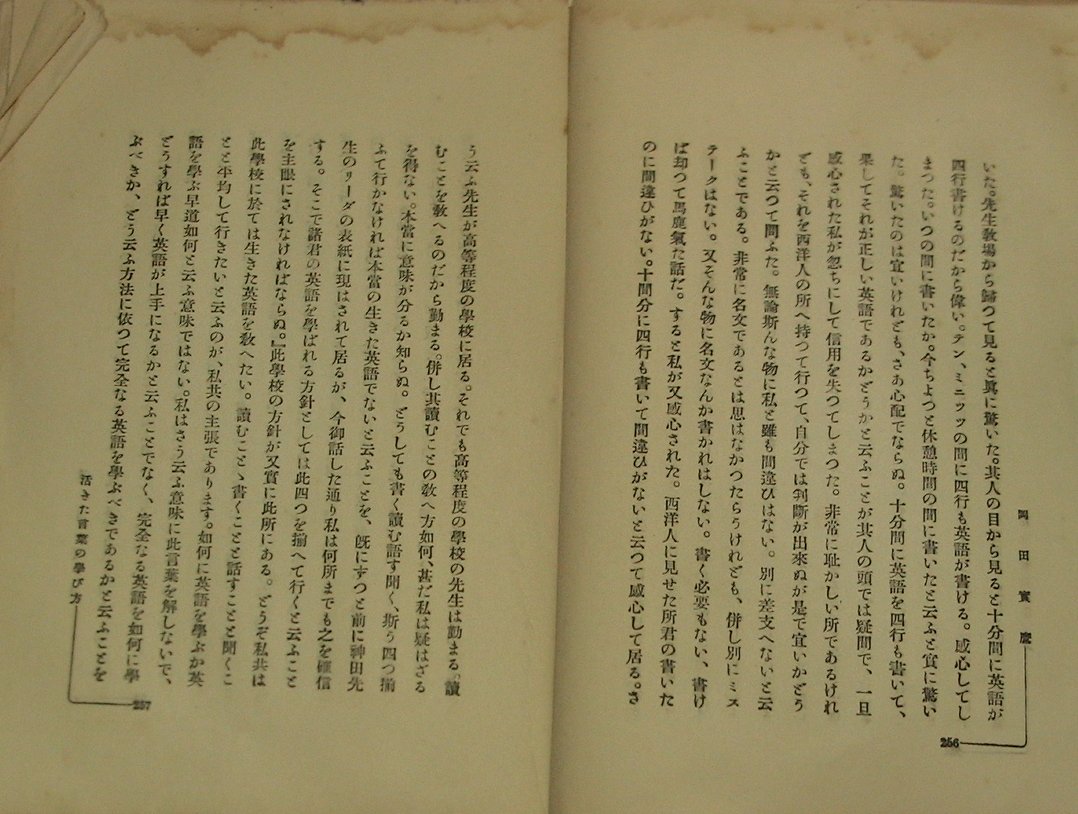 岡田實麿
256
いた。先生敎場から歸つて見ると眞に驚いた。其人の目から見ると十分間に英語が
四行書けるのだから偉い。テン、ミニッツの間に四行も英語が書ける。感心してし
まつた。いつの間に書いたか。今ちよつと休憩時間の間に書いたと云ふと實に驚い
た。驚いたのは宜いけれども、さあ心配でならぬ。十分間に英語を四行も書いて、
果してそれが正しい英語であるかどうかと云ふことが其人の頭では疑問で、一旦
感心された私が忽ちにして信用を失つてしまつた。非常に耻かしい所であるけれ
ども、それを西洋人の所へ持つて行つて、自分では判斷が出來ぬが是で宜いかどう
かと云つて問ふた。無論斯んな物に私と雖も間違ひはない。別に差支へないと云
ふことである。非常に名文であるとは思はなかつたらうけれども、併し別にミス
テークはない。又そんな物に名文なんか書かれはしない。書く必要もない、書け
ば却つて馬鹿氣た話だ。すると私が又感心された。西洋人に見せた所君の書いた
のに間違ひがない。十間分に四行も書いて間違ひがないと云つて感心して居る。さ
う云ふ先生が高等程度の學校に居る。それでも高等程度の學校の先生は勤まる。讀
むことを敎へるのだから勤まる。併し其讀むことの敎へ方如何、甚だ私は疑はざる
を得ない。本當に意味が分るか知らぬ。どうしても書く讀む語す聞く、斯う四つ揃
ふて行かなければ本當の生きた英語でないと云ふことを、旣にずつと前に神田先
生のリーダの表紙に現はされて居るが、今御話した通り私は何所までも之を確信
する。そこで諸君の英語を學ばれる方針としては此四つを揃へて行くと云ふこと
を主眼にされなければならぬ。』此學校の方針が又實に此所にある。どうぞ私共は
此學校に於ては生きた英語を敎へたい。讀むことゝ書くことと話すことと聞くこ
とと平均して行きたいと云ふのが、私共の主張であります。如何に英語を學ぶか英
語を學ぶ早道如何と云ふ意味ではない。私はさう云ふ意味に此言葉を解しないで、
どうすれば早く英語が上手になるかと云ふことでなく、完全なる英語を如何に學
ぶべきか、どう云ふ方法に依つて完全なる英語を學ぶべきであるかと云ふことを
活きた言葉の學び方
257